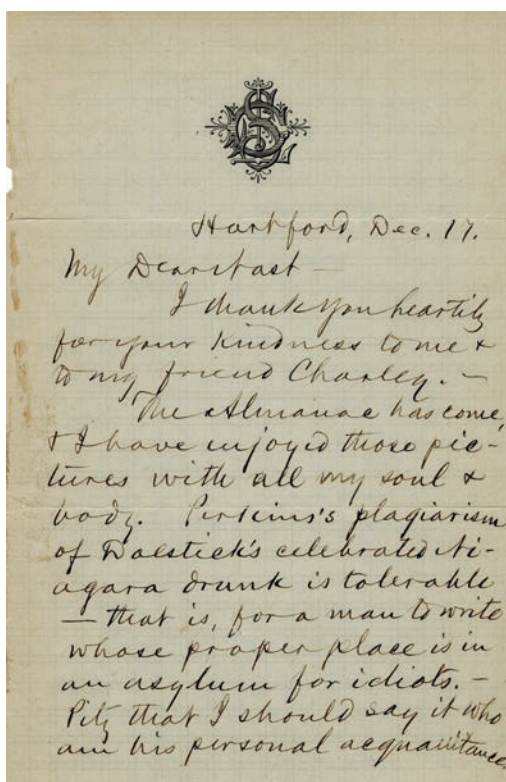 Hartford, Dec. 17.
My Dear Nast —
I thank you heartily
for your kindness to me &
to my friend Charley. —
The Almanac has come,
& I have enjoyed those pic-
tures with all my soul &
body. Perkins's plagiarism
of Doestick's celebrated Ni-
agara drunk is tolerable
— that is, for a man to write
whose proper place is in
an asylum for idiots. —
Pity that I should say it who
am his personal acquaintance.